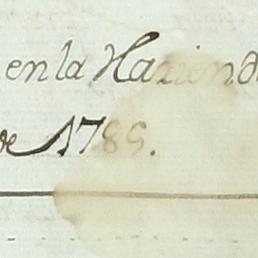 en la Haziend
de 1785.